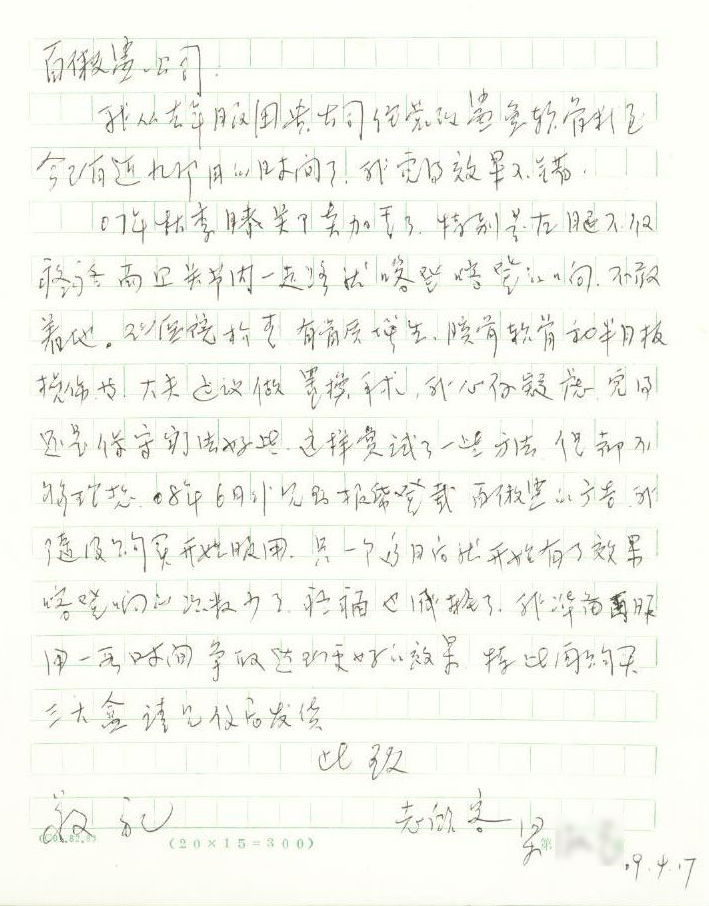 百傲鲨公司:
我从去年服用贵公司经营的鲨鱼软骨粉至
今已有近九个月的时间了.我觉的效果不错.
07年秋季膝关节炎加重了.特别是左腿不仅
疼痛而且关节内一走路就咯噔咯噔的响.不敢
着地。到医院检查有骨质增生、膝骨软骨和半月板
损伤 大夫建议做置换手术,我心存疑虑,觉的
还是保守疗法好些.这样尝试了一些方法但都不
够理想.08年6月 见到报纸登载百傲鲨的广告.我
随及购买开始服用.只一个多月后就开始有了效果
咯噔响的次数少了.疼痛也减轻了.我准备再服
用一段时间争取达到更好的效果.特此再购买
三大盒请见信后发货
此致
敬礼
老顾客 梁
09.4.17
(20×15=300)
第